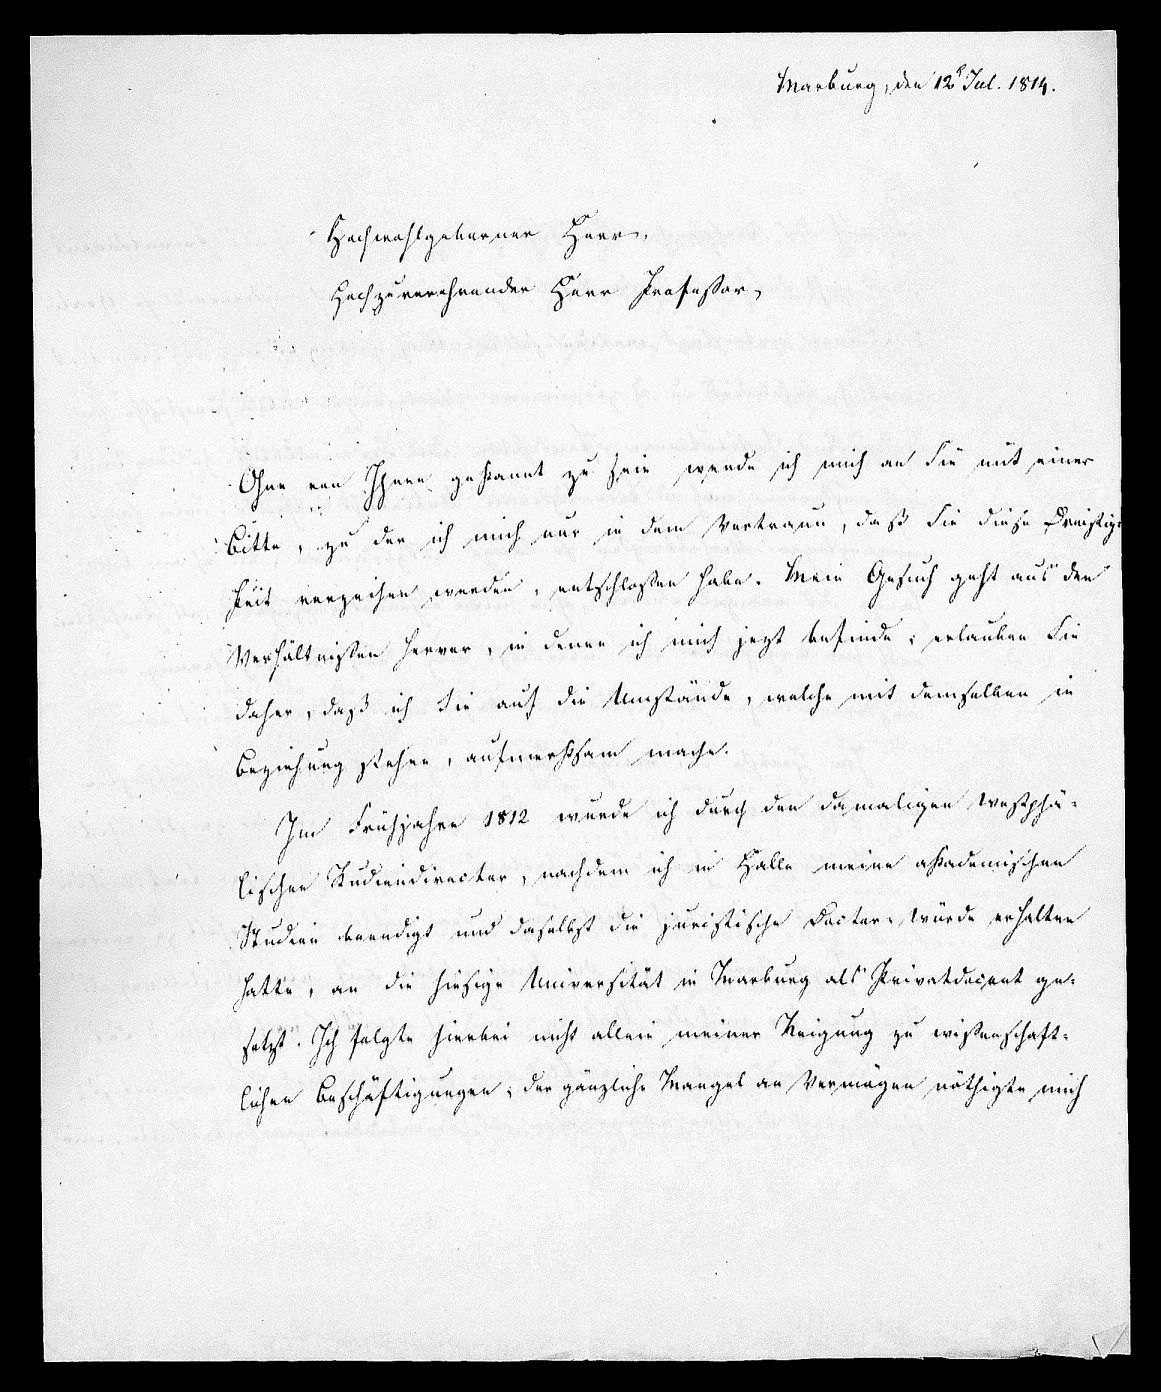 Marburg, den 12t Jul. 1814.
Hochwohlgeborner Herr,
Hochzuverehrender Herr Professor,
Ohne von Ihnen gekannt zu sein wende ich mich an Sie mit einer
Bitte, zu der ich mich nur in dem Vertraun, daß Sie diese Dreistig-
keit verzeihen werden, entschloßen habe. Mein Gesuch geht aus den
Verhältnißen hervor, in denen ich mich jezt befinde; erlauben Sie
daher, daß ich Sie auf die Umstände, welche mit demselben in
Beziehung stehen, aufmerksam mache.
Im Frühjahre 1812 wurde ich durch den damaligen Westphä-
lischen Studiendirector, nachdem ich in Halle meine akademischen
Studien beendigt und daselbst die juristische Doctor-Würde erhalten
hatte, an die hiesige Universität in Marburg als Privatdocent ge-
setzt. Ich folgte hierbei nicht allein meiner Neigung zu wißenschaft-
lichen Beschäftigungen; der gänzliche Mangel an Vermögen nöthigte mich